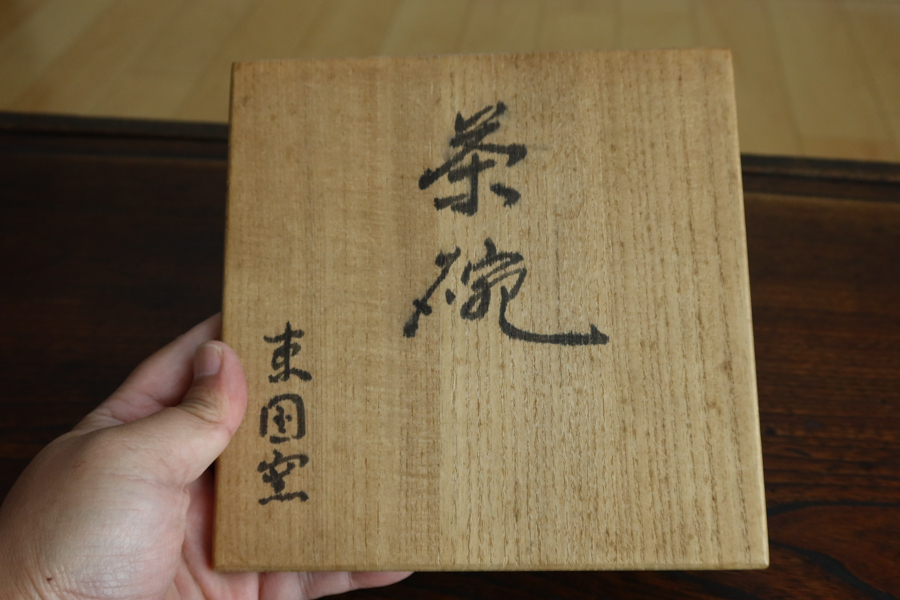 茶碗
東国窯